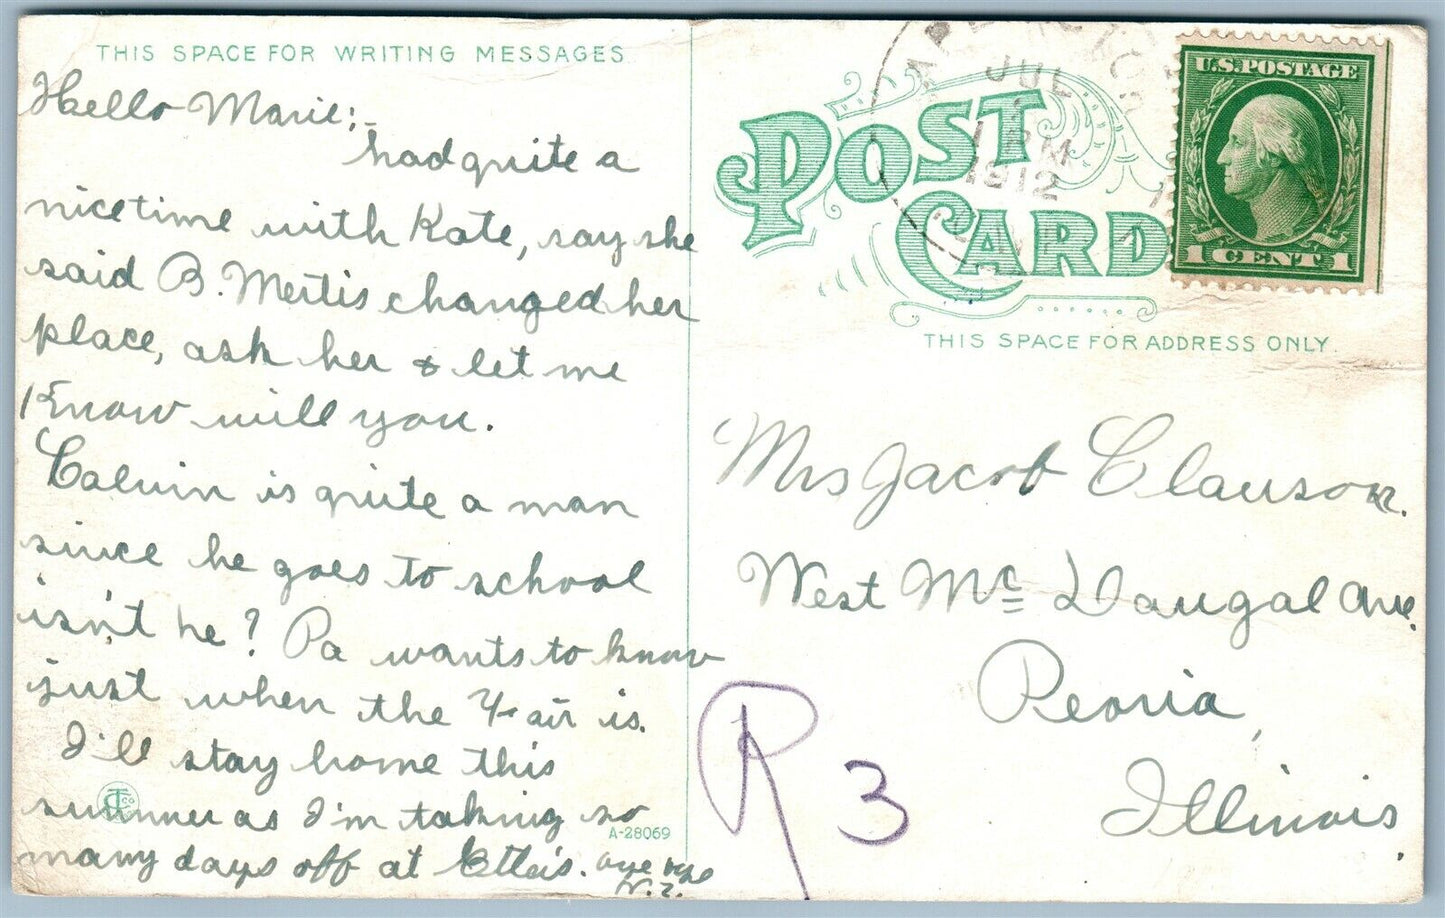 THIS SPACE FOR WRITING MESSAGES
Hello Marie:-
had quite a
nice time with Kate, say she
said B. Mertis changed her
place, ask her & let me
Know will you.
Calvin is quite a man
since he goes to school
isn't he? Pa wants to know
just when the Fair is.
I'll stay home this
summer as I'm taking so
many days off at
A-28069
POST
CARD
JUL
1 PM
1912
U.S. POSTAGE
1 CENT 1
THIS SPACE FOR ADDRESS ONLY.
Mrs Jacob Clauson.
West Mc Daugal Ave.
Peoria,
Illinois.
R 3